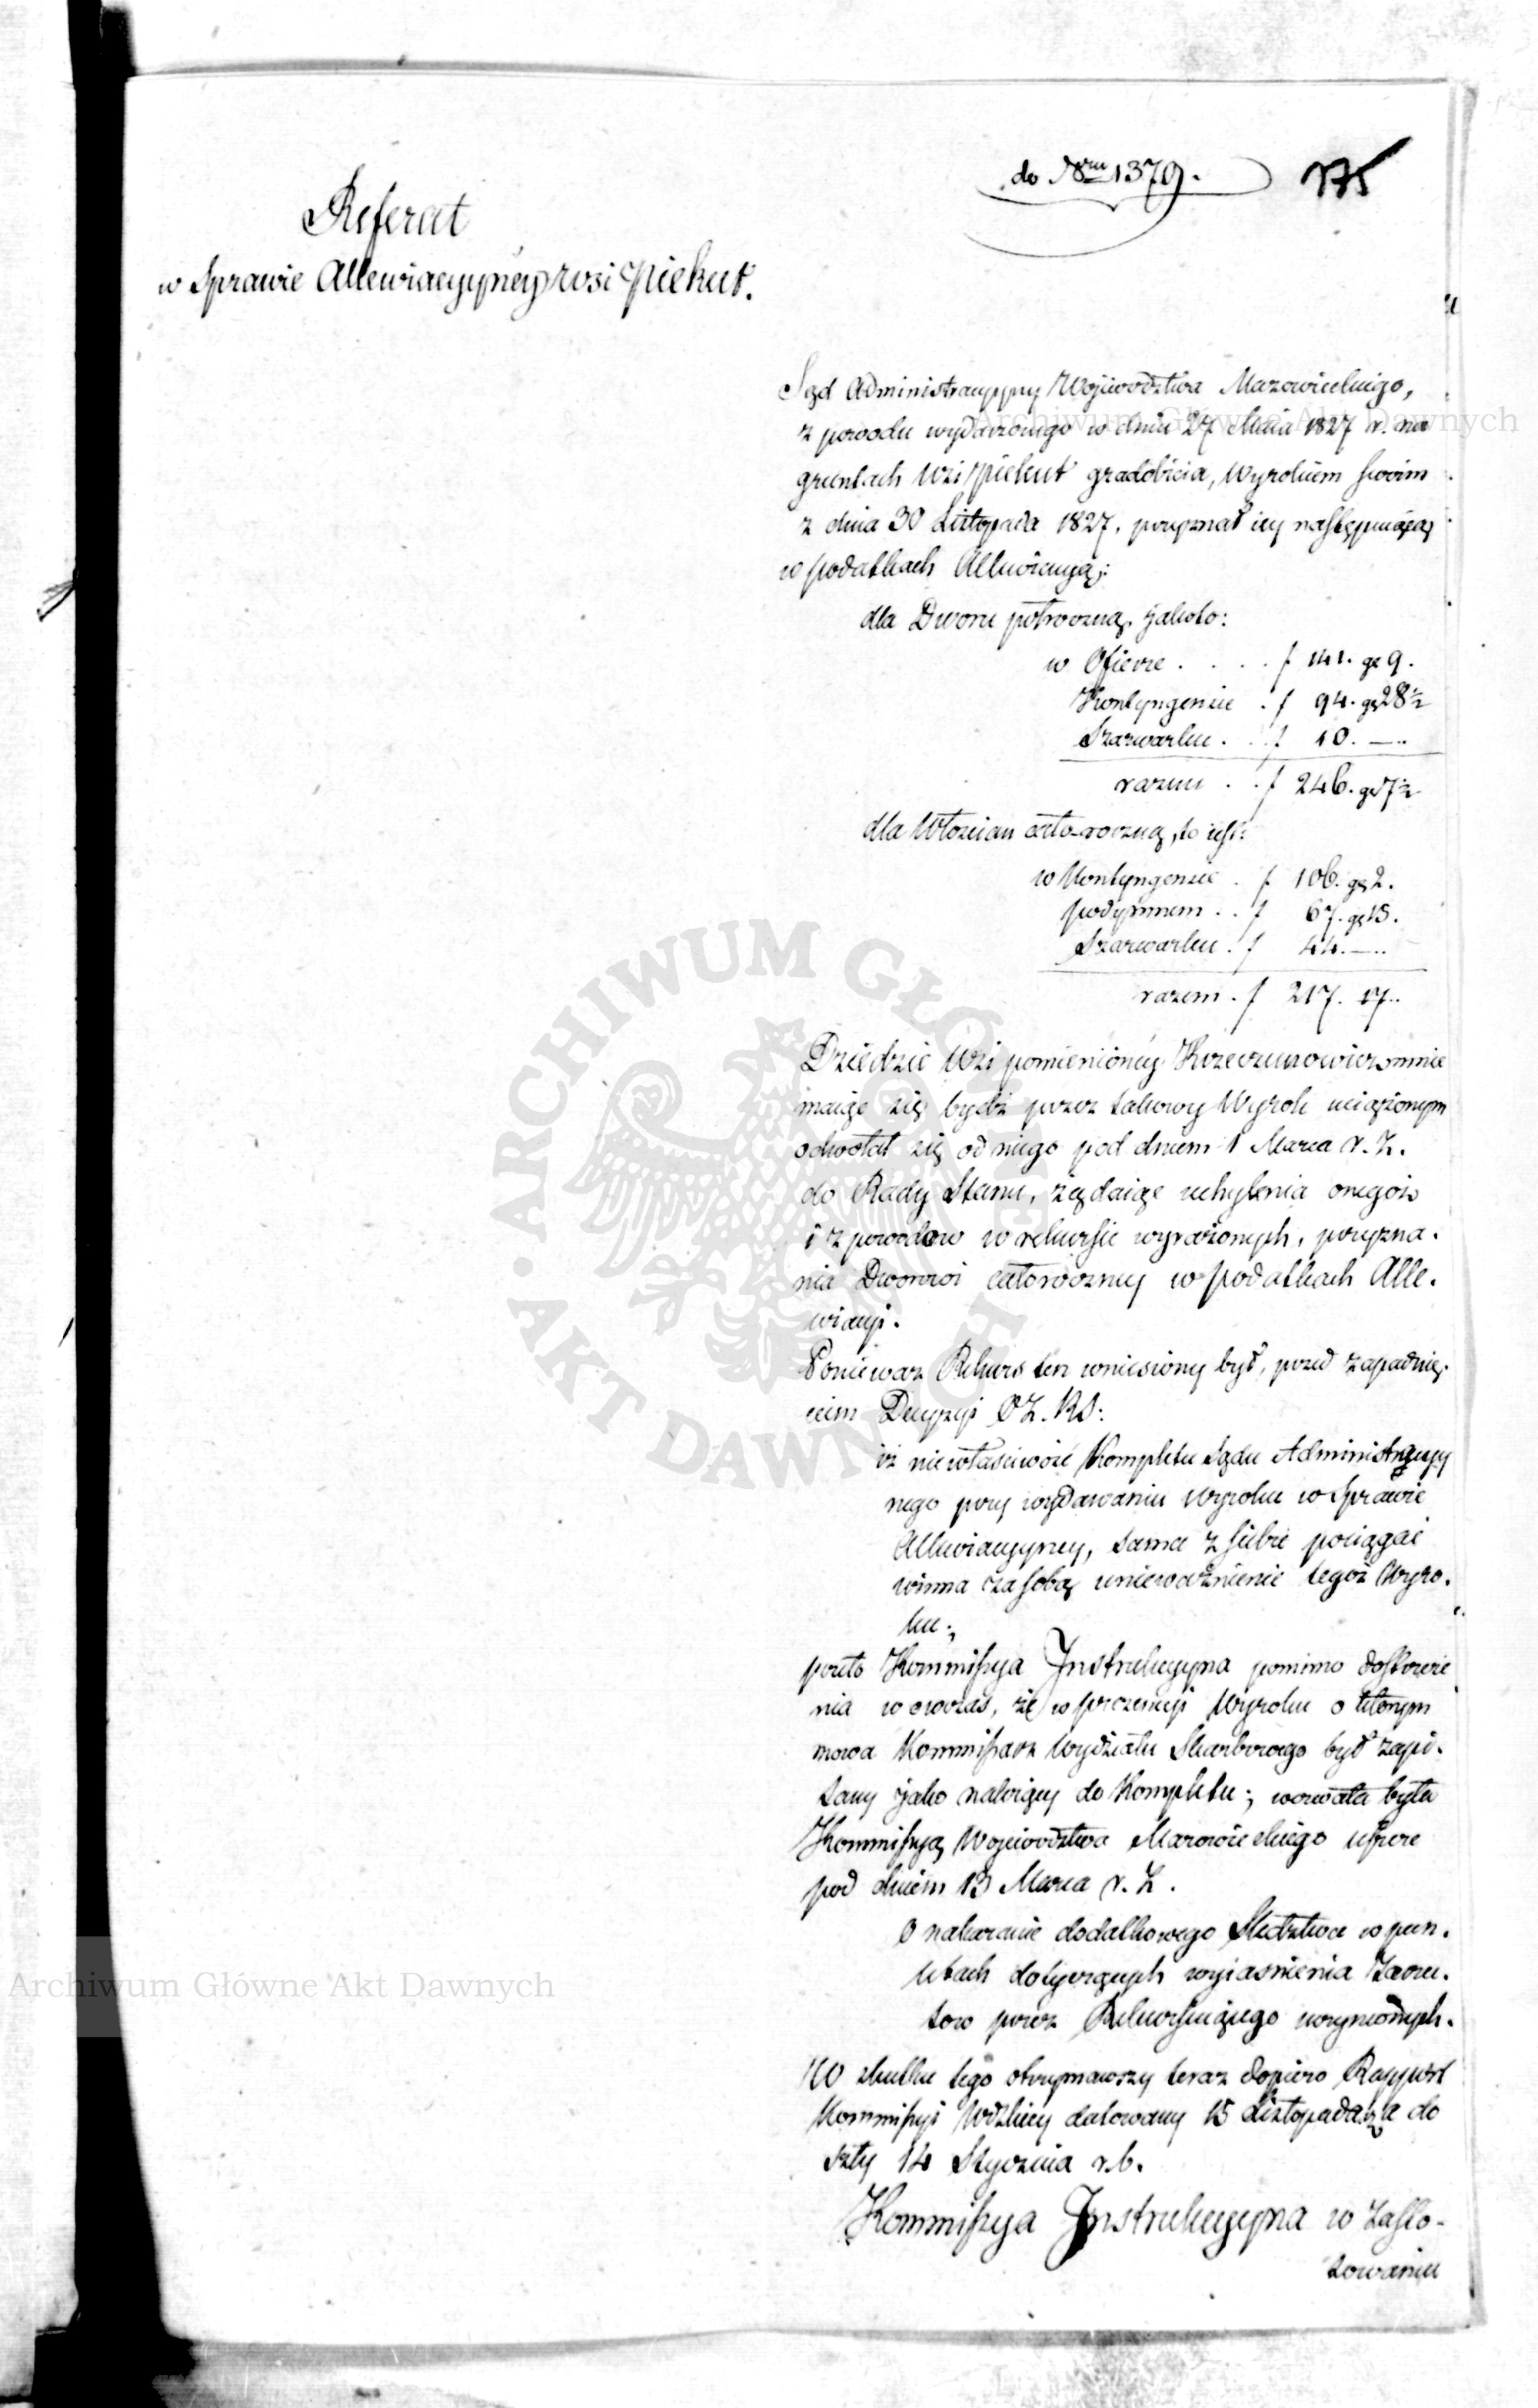 do Nru 1379.
175
Referat
w Sprawie Allewiacyyney wsi Piekut.
Sąd Administracyyny Woiewodztwa Mazowieckiego,
z powodu wydarzonego w dniu 27 Maia 1827 r. na
gruntach Wsi Piekut gradobicia, Wyrokiem swoim
z dnia 30 Listopada 1827, przyznał iey następuiącą
w podatkach Allewiacyą:
dla Dworu połroczną, jakoto:
w Ofierze . . . . f 141. gr 9.
Kontyngensie . f 94. gr 28½
Szarwarku . . f 10. —..
razem . . f 246. gr 7½
dla Włościan cało-roczną, to iest:
w Kontyngensie . f 106. gr 2.
podymnem . . f 67. gr 15.
Szarwarku . f 44. —..
razem . f 217. 17..
Dziedzic Wsi pomienioney mnie
maiąc się bydź przez takowy Wyrok uciążonym
odwołał się od niego pod dniem 1 Marca r. z.
do Rady Stanu, żądaiąc uchylenia onegoż
i z powodow w rekursie wyrażonych, przyzna.
nia Dworowi całoroczney w podatkach Alle.
wiacyi.
Ponieważ Rekurs ten wniesiony był, przed zapadnię.
ciem Decyzyi OZ. RS:
iż niewłaściwość Kompletu Sądu Administracyy
nego przy wydawaniu Wyroku w Sprawie
Allewiacyyney, sama z siebie pociągać
winna za sobą unieważnienie tegoż Wyro.
ku;
przeto Kommissya Instrukcyyna pomimo dostrzeże
nia wowczas, że w prezencyi Wyroku o ktorym
mowa Kommissarz Wydziału Skarbowego był zapi.
sany jako należący do Kompletu; wezwała była
Kommissyą Woiewodztwa Mazowieckiego
pod dniem 13 Marca r. z.
O nakazanie dodatkowego Śledztwa w pun.
ktach dotyczących wyiaśnienia Zarzu.
tow przez Rekursuiącego uczynionych.
W skutku tego otrzymawszy teraz dopiero Rapport
Kommissyi Wdzkiey datowany 15 Listopada r. z. a do
szły 14 Stycznia r. b.
Kommissya Instrukcyyna w Zasto-
sowaniu
Archiwum Główne Akt Dawnych
Archiwum Główne Akt Dawnych
ARCHIWUM GŁÓWNE
AKT DAWNYCH